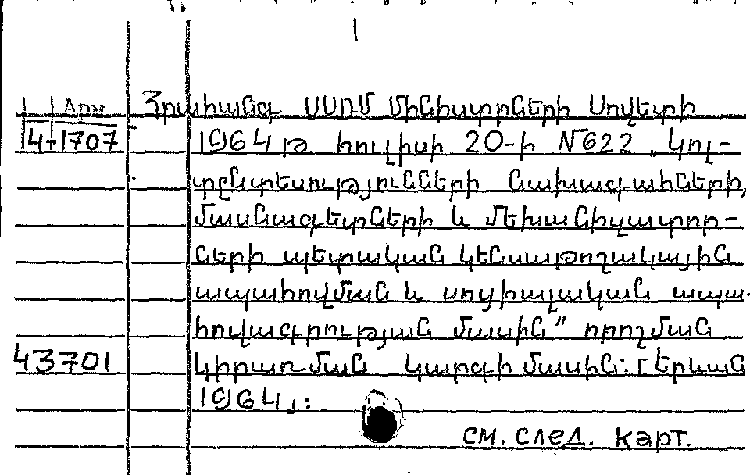 Հրահանգ ՍՍՌՄ Մինիստրների Սովետի
4-1707 1964 թ հուլիսի 20-ի N622 „Կոլ-
տընտեսությունների նախագահների,
մասնագետների և մեխանիզատոր-
ների պետական կենսաթոշակային
ապահովման և սոցիալական ապա-
հովագրության մասին” որոշման
43701 կիրառման կարգի մասին: Երևան
1964թ:
см. след. карт.